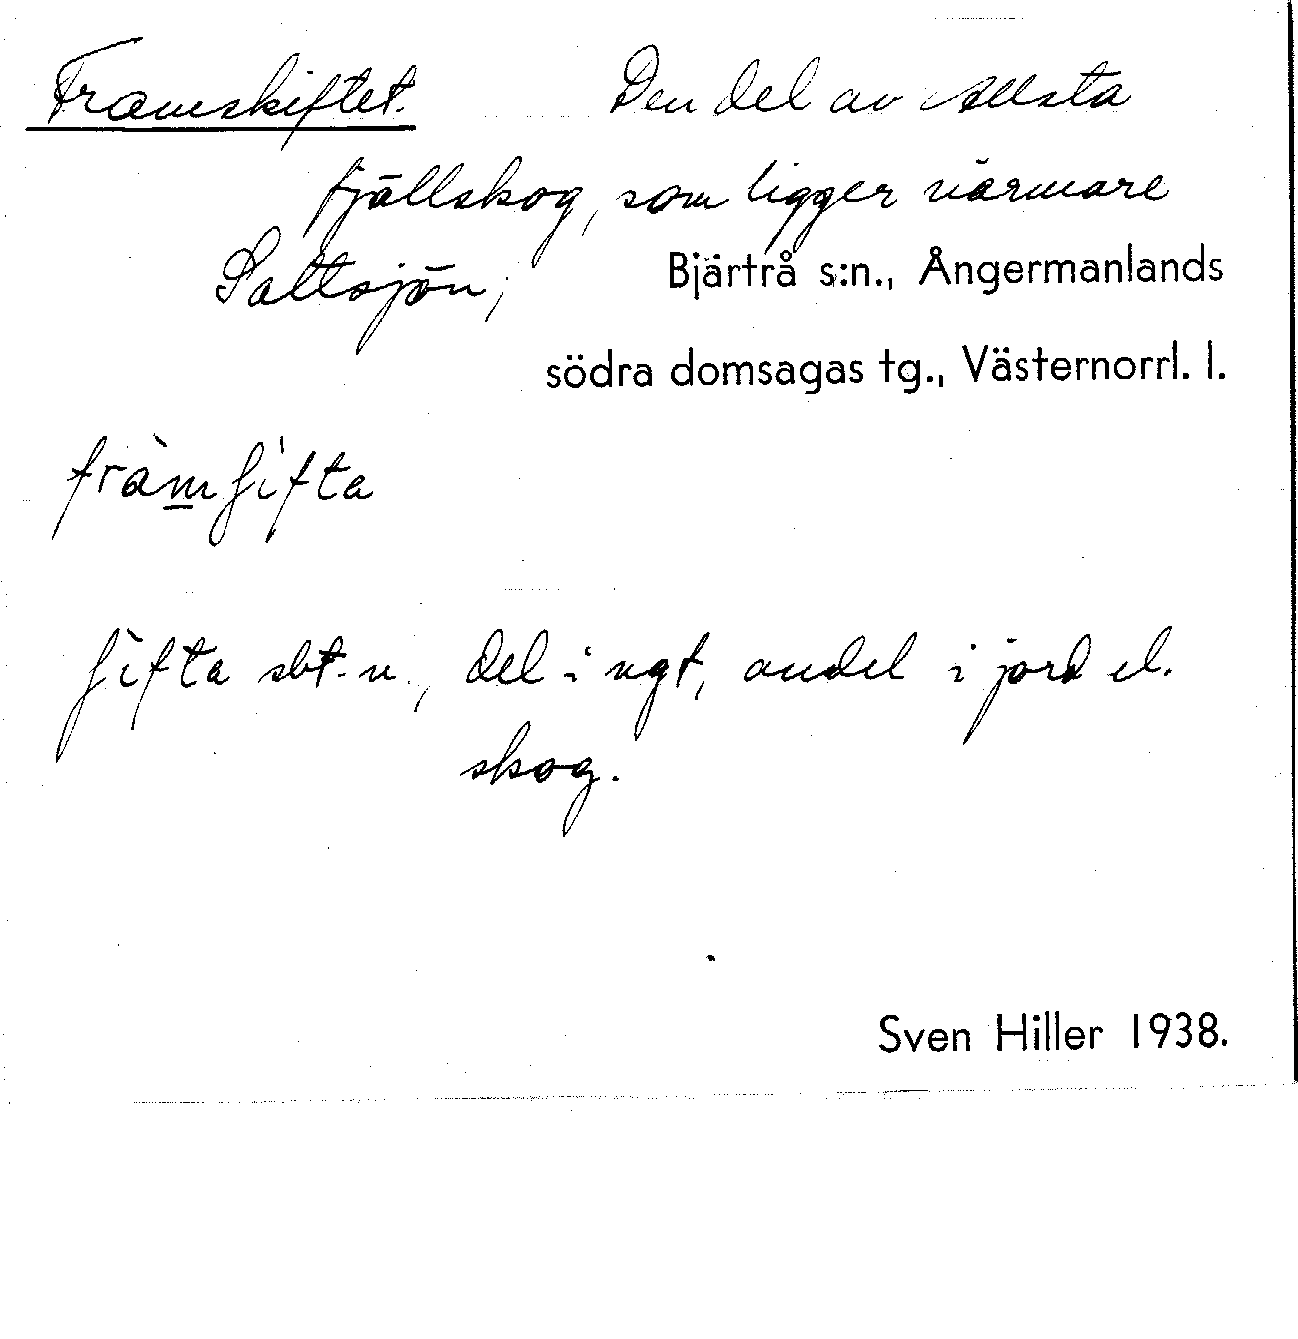 Framskiftet. Den del av Allsta
fjällskog, som ligger närmare
Saltsjön; Bjärtrå s:n., Ångermanlands
södra domsagas tg., Västernorrl. l.
fràmʃìfta
ʃìfta sbt. n., del i ngt, andel i jord el.
skog.
Sven Hiller 1938.